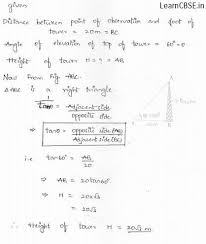 LearnCBSE.in
given
Distance between point of observation and foot of
tower = 20m = BC
Angle of elevation of top of tower = 60° = θ
Height of tower H = ? = AB
Now from fig ABC
ΔABC is a right triangle
Adjacent side
opposite side
tanθ = opposite side (AB)
Adjacent side (BC)
i.e tan60° = AB
20
⇒ AB = 20tan60°
⇒ H = 20×√3
= 20√3
∴ Height of tower H = 20√3 m